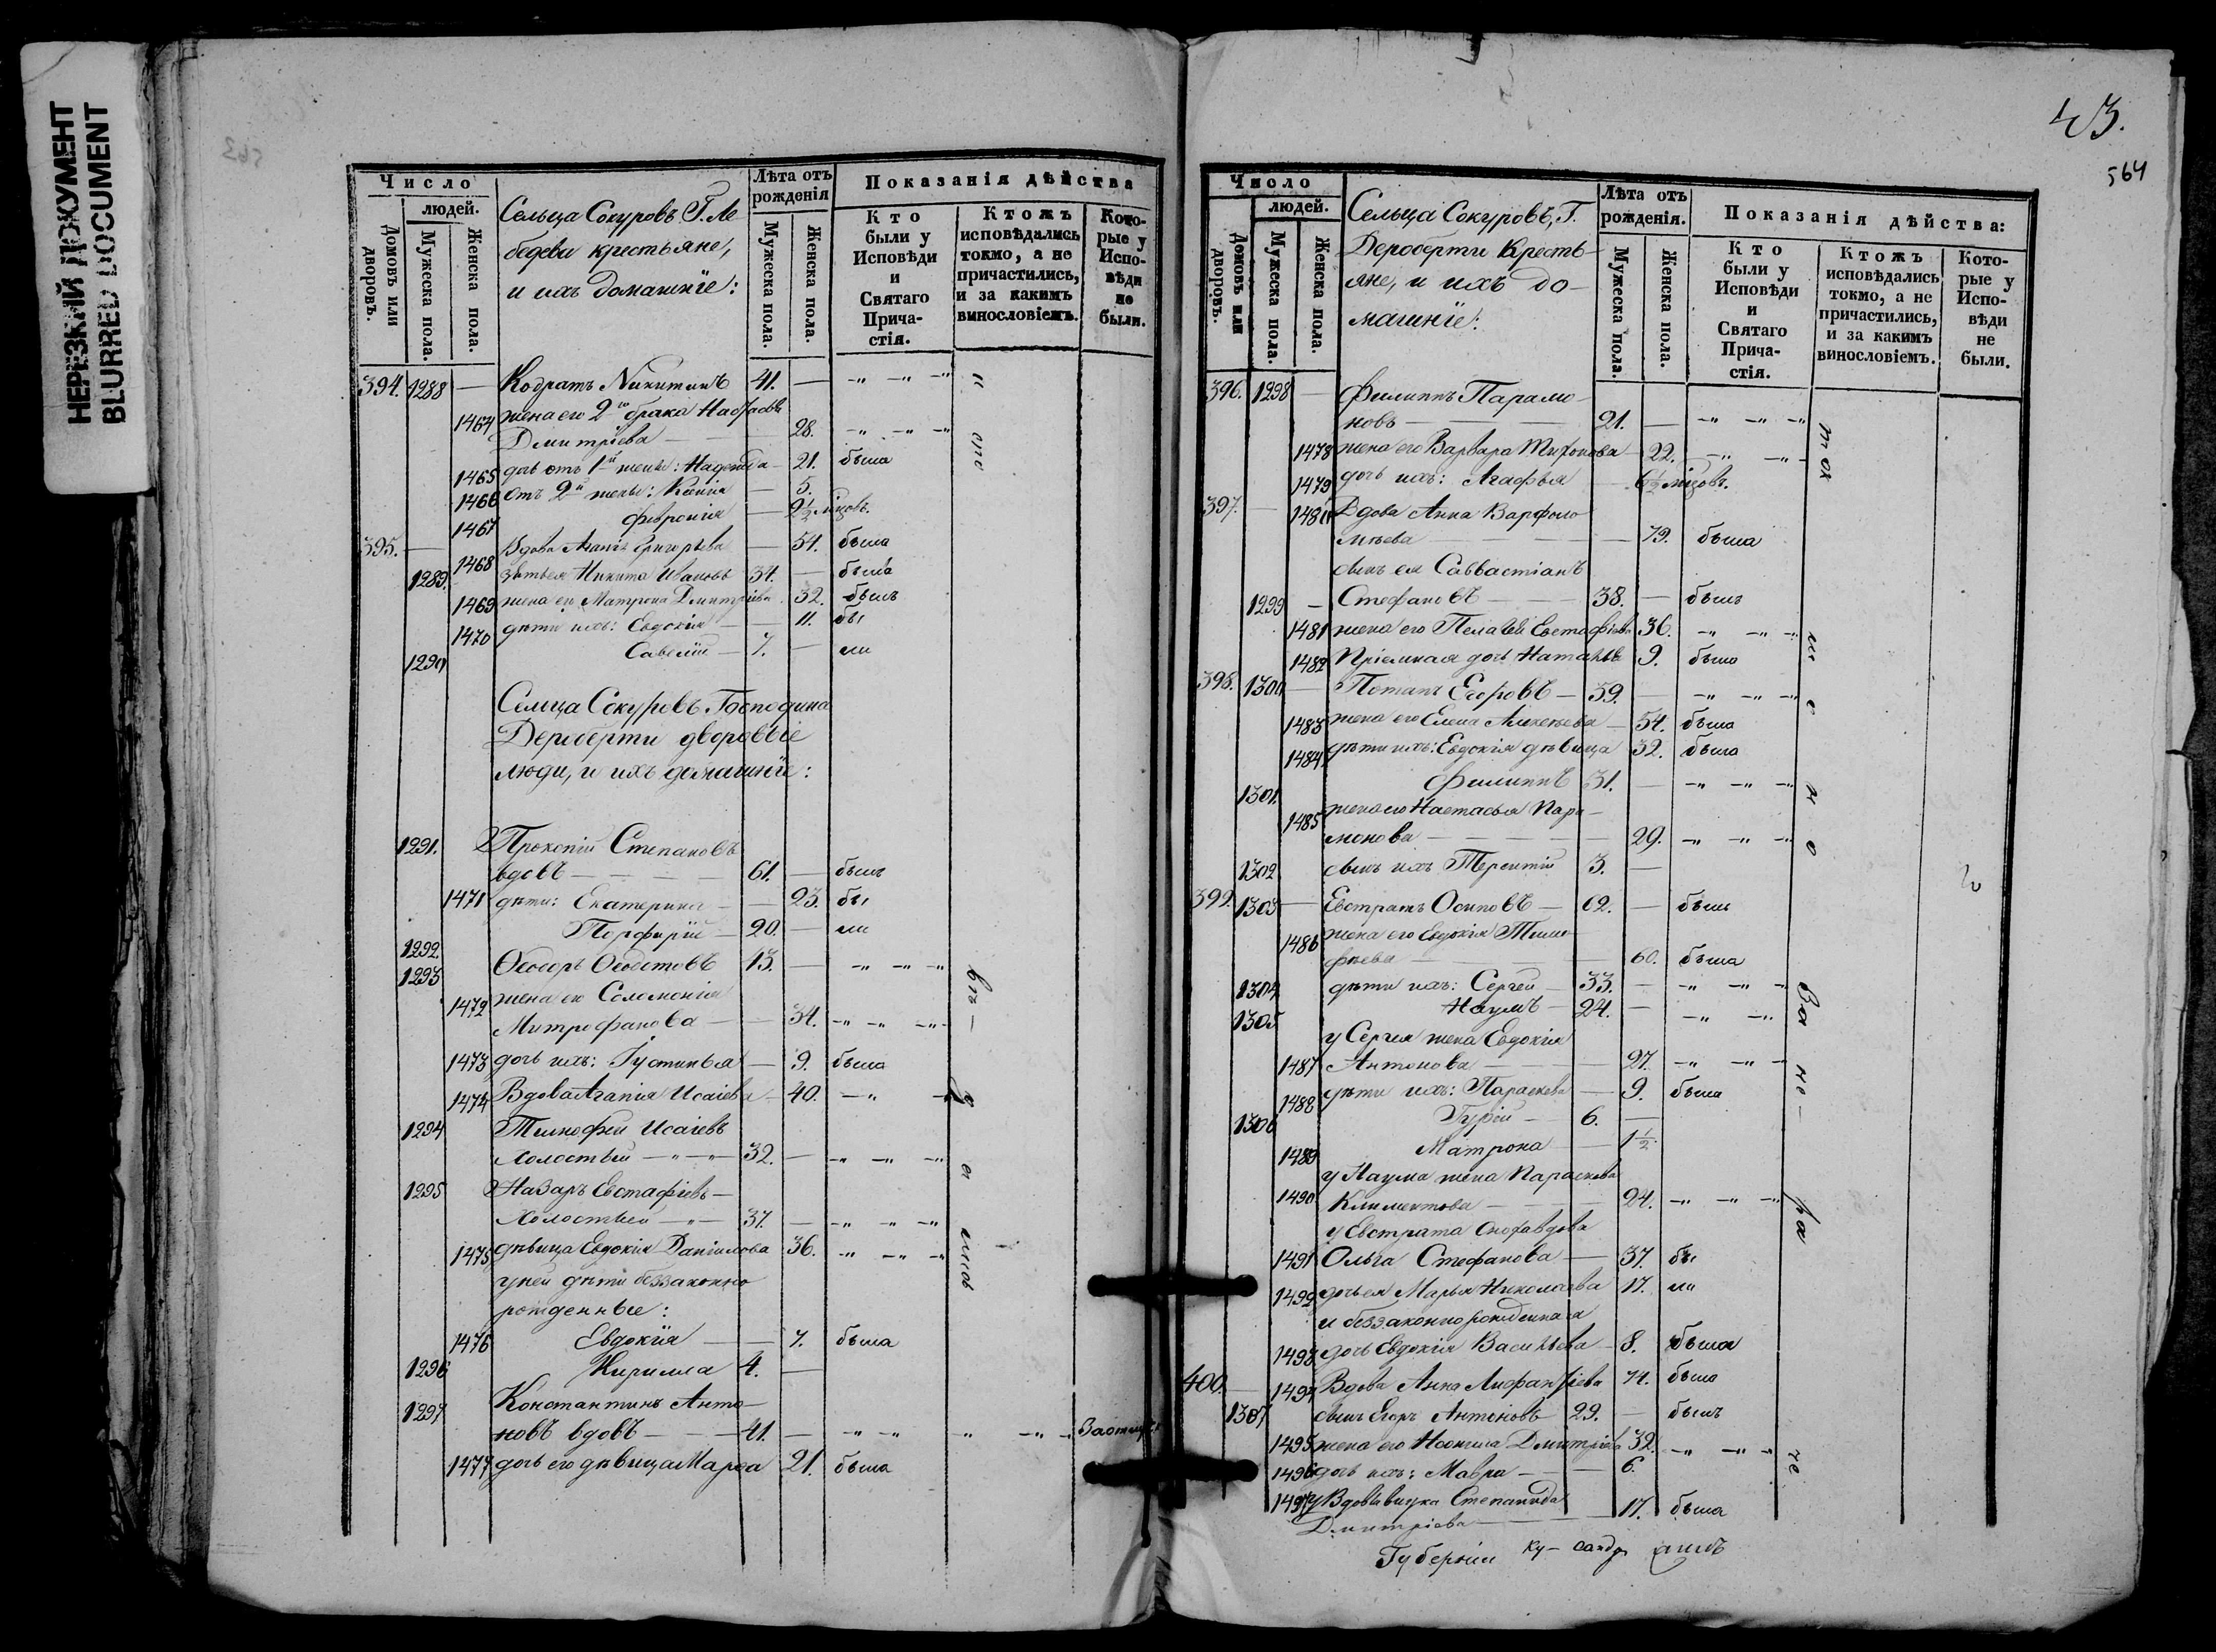 НЕРЕЗКИЙ ДОКУМЕНТ
BLURRED DOCUMENT
Число
людей.
Домовъ или дворовъ.
Мужеска пола.
Женска пола.
Сельца Сокуровъ Г. Ле
бедевы крестьяне,
и ихъ домашнїе:
Лѣта отъ рожденія
Мужеска пола.
Женска пола.
Показанія дѣйства
Кто были у Исповѣди и Святаго Прича-стія.
Ктожъ исповѣдались токмо, а не причастились, и за какимъ винословіемъ.
Кото-рые у Испо-вѣди не были.
394. 1288 — Кодратъ Никитинъ 41. —
1464 жена его 2го брака Настасья
Дмитріева 28.
1465 дочь отъ 1й жены: Надежда 21. была
1466 отъ 2й жены: Ксенія 5.
1467 Феѵронія 2½
395. 1468 Вдова Григорьева 54. была
1289 зять ея Никита Ивановъ 34. — былъ
1469 жена его Матрона Дмитріева 32.
1470 дѣти ихъ: Евдокія 11. бы
1290 Савелїй 7. — ли
Сельца Сокуровъ Господина
Дероберти дворовые
люди, и ихъ домашнїе:
1291. Прокопій Степановъ
вдовъ 61. — былъ
1471 дѣти: Екатерина 23. бы
1292 Порфирїй 20. — ли
1293 Ѳеодоръ Ѳеоктистовъ —
1472 жена его Соломонія
Митрофанова 34.
1473 дочь ихъ: Іустинья 9. была
1474 Вдова Агапія Исаіева 40.
1294 Тимофей Исаіевъ
холостый 32. —
1295 Назаръ Евстафіевъ
Холостый 37. —
1475 дѣвица Евдокія Даніилова 36.
у ней дѣти беззаконно
рожденные:
1476 Евдокїя 7. была
1296 Кирилла 4. —
1297 Константинъ Анто-
новъ вдовъ 41. —
1477 дочь его дѣвица Марѳа 21. была
43.
564
Число
людей.
Домовъ или дворовъ.
Мужеска пола.
Женска пола.
Сельца Сокуровъ, Г.
Дероберти Кресть-
яне, и ихъ до-
машнїе:
Лѣта отъ рожденія.
Мужеска пола.
Женска пола.
Показанія дѣйства:
Кто были у Исповѣди и Святаго Прича-стія.
Ктожъ исповѣдались токмо, а не причастились, и за какимъ винословіемъ.
Кото-рые у Испо-вѣди не были.
396. 1298 — Филиппъ Парамо-
новъ 21. —
1478 жена его Варвара Тихонова 22.
1479 дочь ихъ: Агафья 6½
397. — 1480 Вдова Анна Варфоло
меева 79. была
сынъ ея Саввастіанъ
1299 — Стефановъ 38. — былъ
1481 жена его Пелагея Евстафіева 36.
1482 Пріемная дочь Наталья 9. была
398. 1300 — Потапъ Егоровъ — 59. —
1483 жена его Елена Алексѣева 54. была
1484 дѣти ихъ: Евдокія дѣвица 32. была
1301. Филиппъ 31. —
1485 жена его Настасья Пара-
монова 29.
1302 сынъ ихъ Терентій 3. —
399. 1303 — Евстратъ Осиповъ — 62. — былъ
1486 жена его Евдокія Тимо
фѣева 60. была
1304 дѣти ихъ: Сергей 33. —
1305 Наумъ 24. —
у Сергея жена Евдокія
1487 Антонова 27.
1488 дѣти ихъ: Параскева — 9. была
1306 Гурїй 6. —
1489 Матрона 1½
у Наума жена Параскева
1490 Климентова 24.
у Евстрата сноха вдова
1491 Ольга Стефанова 37. бы
1492 дочь ея Марья Николаева 17. ли
и беззаконнорожденная
1493 дочь Евдокія Васильева 8. была
400. — 1494 Вдова Анна 74. была
1307 сынъ Егоръ Антоновъ 29. — былъ
1495 жена его Дмитріева 32.
1496 дочь ихъ: Мавра 6.
1497 у Вдовы внука Степанида
Дмитріева 17. была
Губерніи